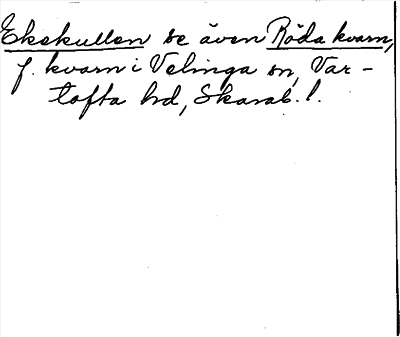 Ekekullen se även Röda kvarn,
f. kvarn i Velinga sn, Var-
tofta hd, Skarab. l.